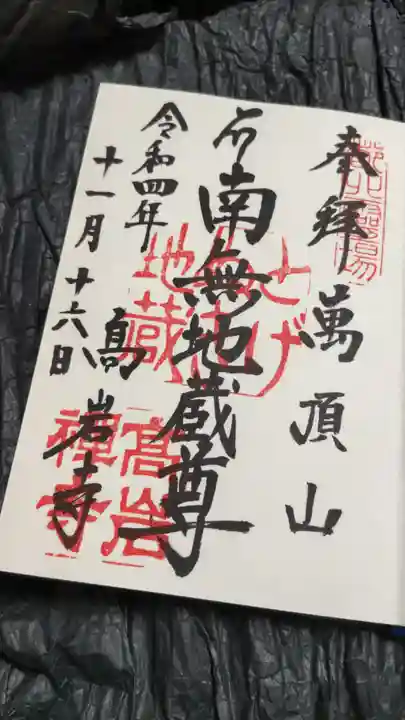 奉拝 萬頂山
南無地蔵尊
令和四年
十一月十六日
高岩寺
とげ
ぬき
地蔵
高岩
禅寺